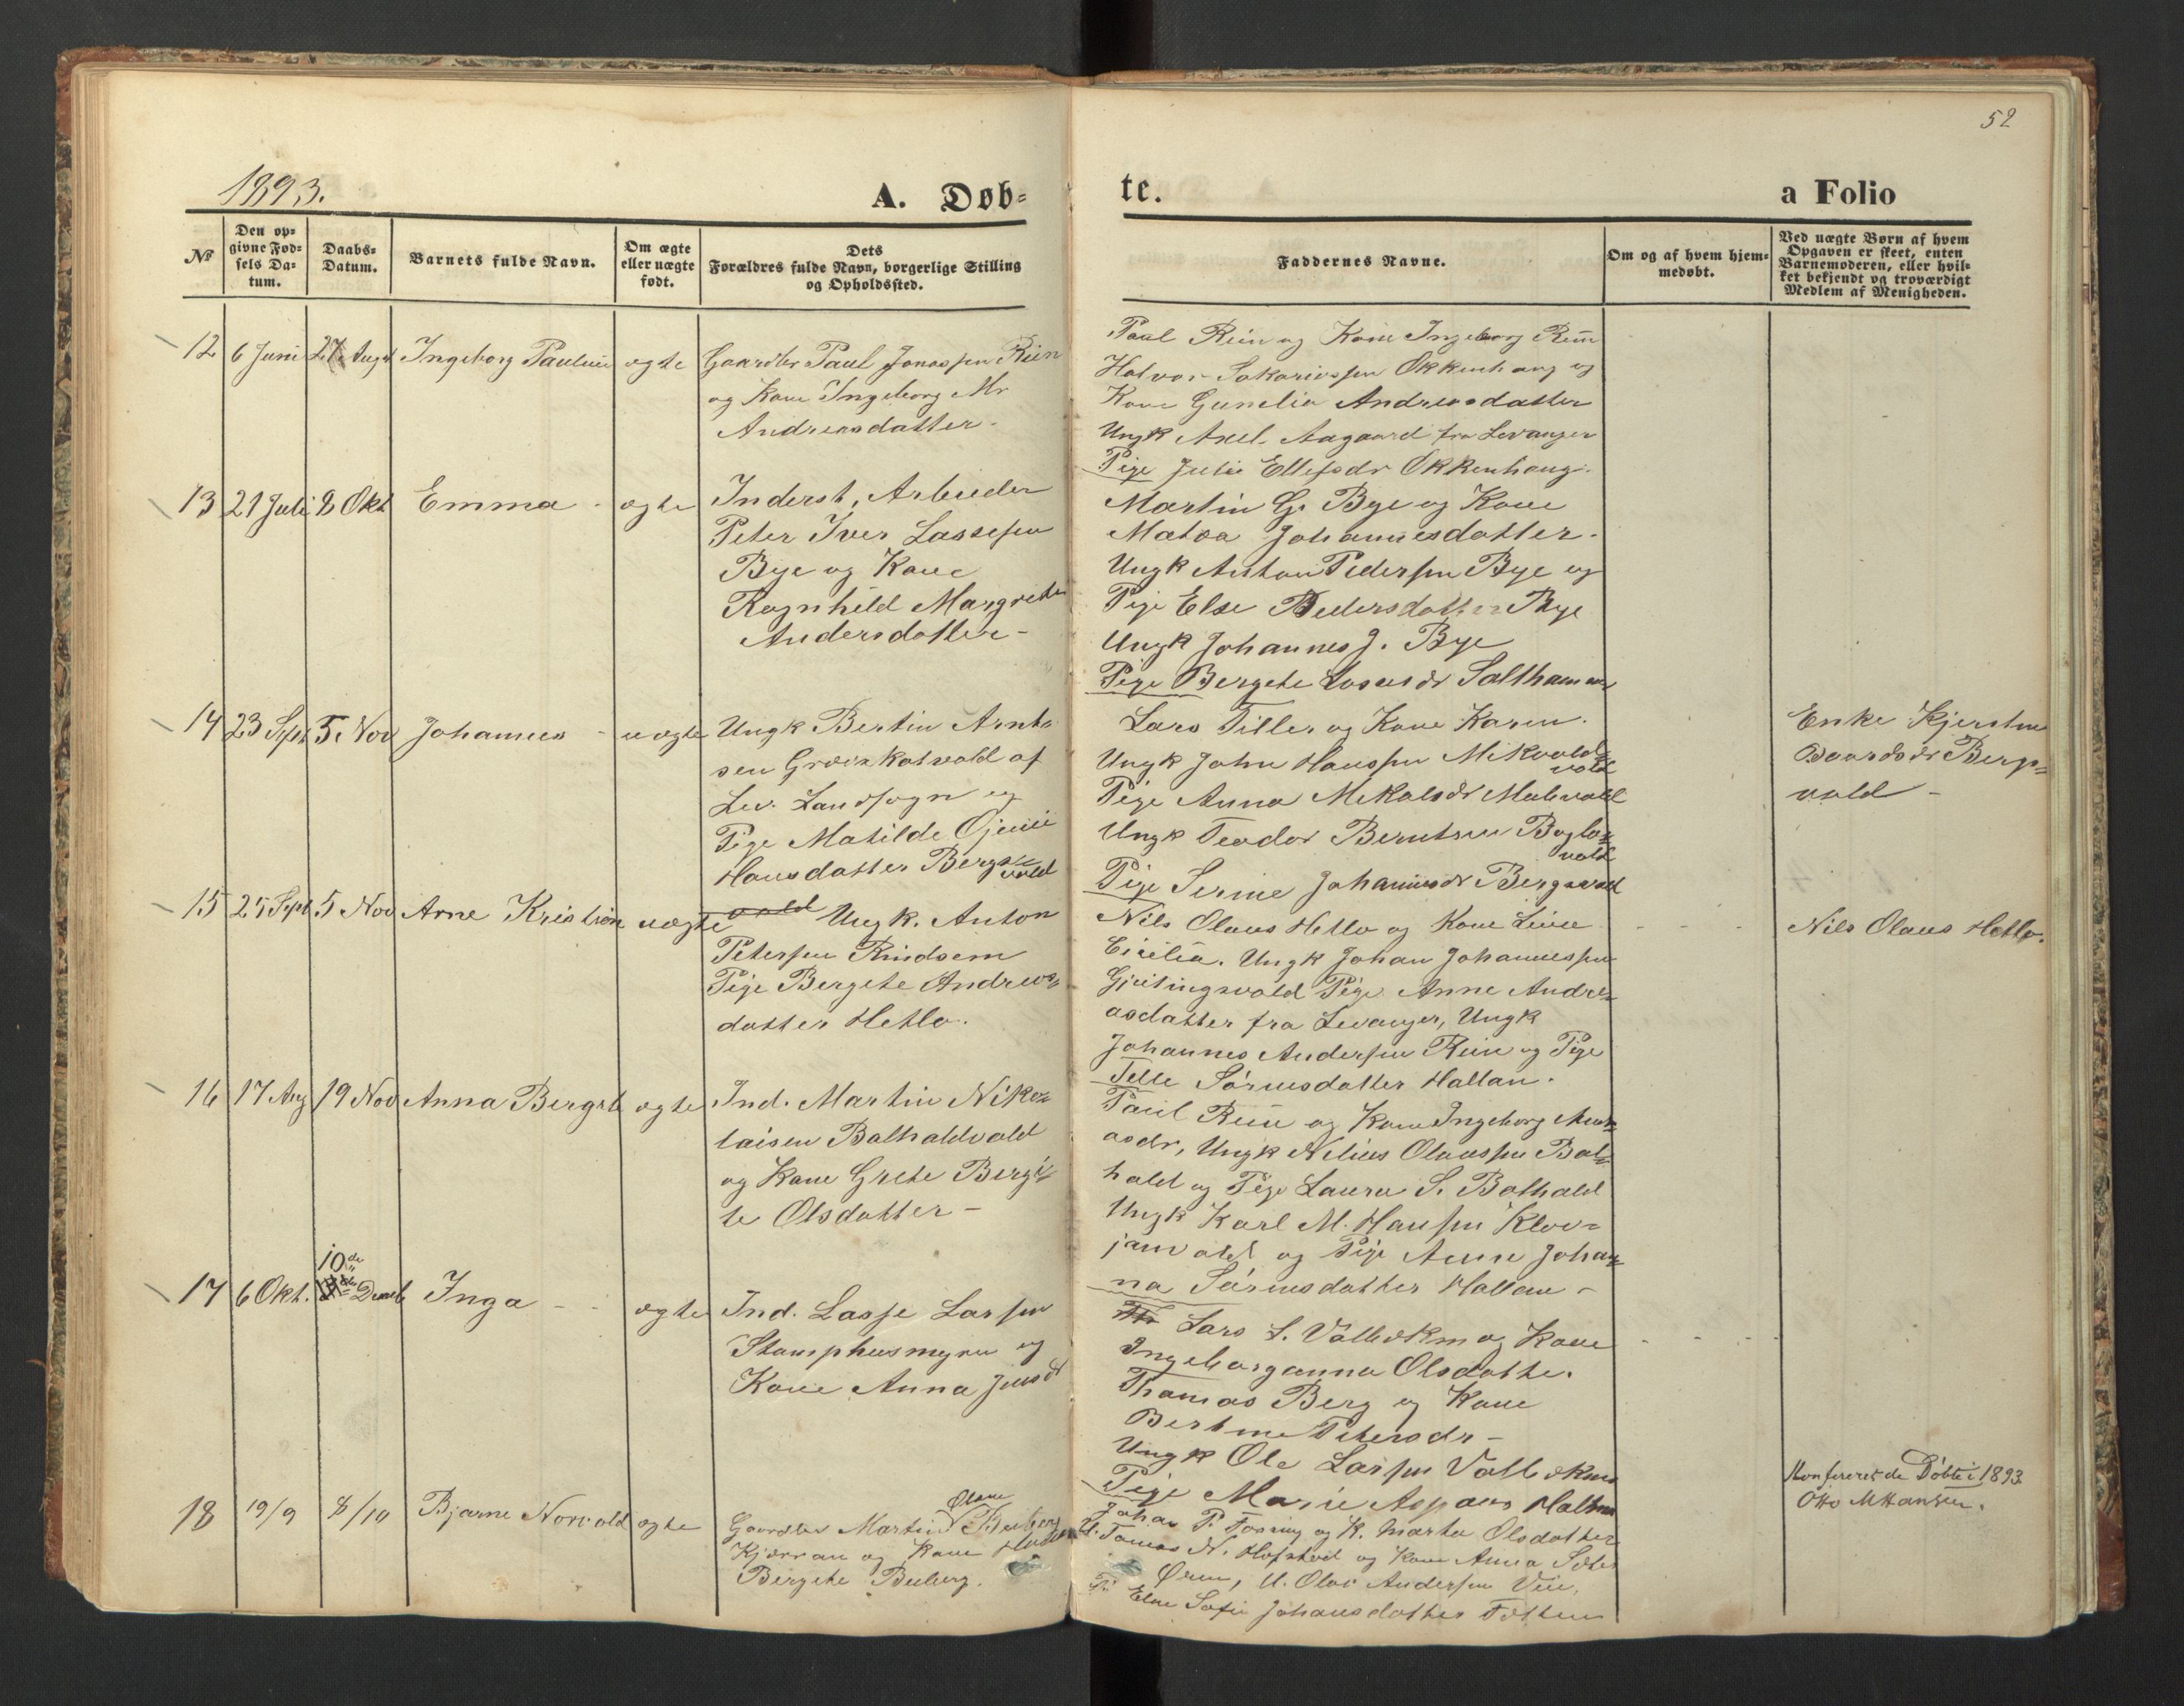 52
1893.
A. Døb=
te.
a Folio
No
Den op=
givne Fød=
sels Da=
tum.
Daabs=
Datum.
Barnets fulde Navn.
Om ægte
eller uægte
født.
Dets
Forældres fulde Navn, borgerlige Stilling
og Opholdssted.
Faddernes Navne.
Om og af hvem hjem=
medøbt.
Ved uægte Børn af hvem
Opgaven er skeet, enten
Barnemoderen, eller hvil=
ket bekjendt og troværdigt
Medlem af Menigheden.
12 6 Juni 27 Augst Ingeborg Pauline ægte Gaardbr Paul Jonassen Rein
og Kone Ingeborg Mr
Andreasdatter.
Paul Rein og Kone Ingeborg Rein
Halvor Sakariassen Okkenhaug og
Kone Gunelia Andreasdatter
Ungk Axel Aagaard fra Levanger
Pige Julie Ellefsdr Okkenhaug.
13 21 Juli 8 Okt Emma - ægte Inderst, Arbeider
Peter Iver Lassesen
Bye og Kone
Ragnhild Margrete
Andersdatter -
Martin G. Bye og Kone
Matea Johannesdatter.
Ungk Anton Pedersen Bye og
Pige Else Pedersdatter Bye
Ungk Johannes J. Bye
Pige Bergete Lassesdr Salthammer
14 23 Sept 5 Nov Johannes - uægte Ungk Bertin Arnt=
sen Græskatvald af
Lev. Landsogn og
Pige Matilde Ojenie
Hansdatter Bergs=
vald
Lars Tiller og Kone Karen.
Ungk John Hanssen Mikvold=
vald
Pige Anna Mikalsdr
Ungk Teodor Berntsen
vald
Pige Serine Johannesdr Bergsvald
Enke Kjerstine
Baardsdr Bergs=
vald -
15 25 Sept 5 Nov Arne Kristian uægte Ungk. Anton
Petersen Rindsem
Pige Bergete Andreas=
datter Hetlo.
Nils Olaus Hetlo og Kone Line
Cicilia. Ungk Johan Johannessen
Gjeitingsvald Pige Anne Andre=
asdatter fra Levanger, Ungk
Johannes Andersen Rein og Pige
Sørensdatter Hallan.
Nils Olaus Hetlo.
16 17 Aug 19 Nov Anna Bergete ægte Ind. Martin Niko=
laisen Balhaldvald
og Kone Grete Bergi=
te Olsdatter -
Paul Rein og Kone Ingeborg Andre=
asdr, Ungk Nelius Olaussen Bal=
hald og Pige Laura S. Balhald
Ungk Karl M. Hanssen Klov=
jamvald og Pige Anne Johan=
na Sørensdatter Hallan -
17 6 Okt. 10de Decmb Inga - - ægte Ind. Lasse Larsen
Stamphusmyren og
Kone Anna Jensdr
Lars L. Valbekmo og Kone
Ingeborganna Olsdatte.
Thomas Berg og Kone
Bertine Petersdr -
Ungk Ole Larsen Valbekmo
Pige Marie Aspaas
18 19/9 8/10 Bjarne Norvald ægte Gaardbr Martin Olaus Beiberg
Kjærran og Kone
Bergete Beiberg.
Johan P. Tosning og K. Marta Olsdatter
U. Tomas N. Hofstad og Kone Anna
Øren, U. Olav Andersen Veie,
P. Else Sofie Johansdatter
Konfererede Døbte i 1893
Otto M Hansen.